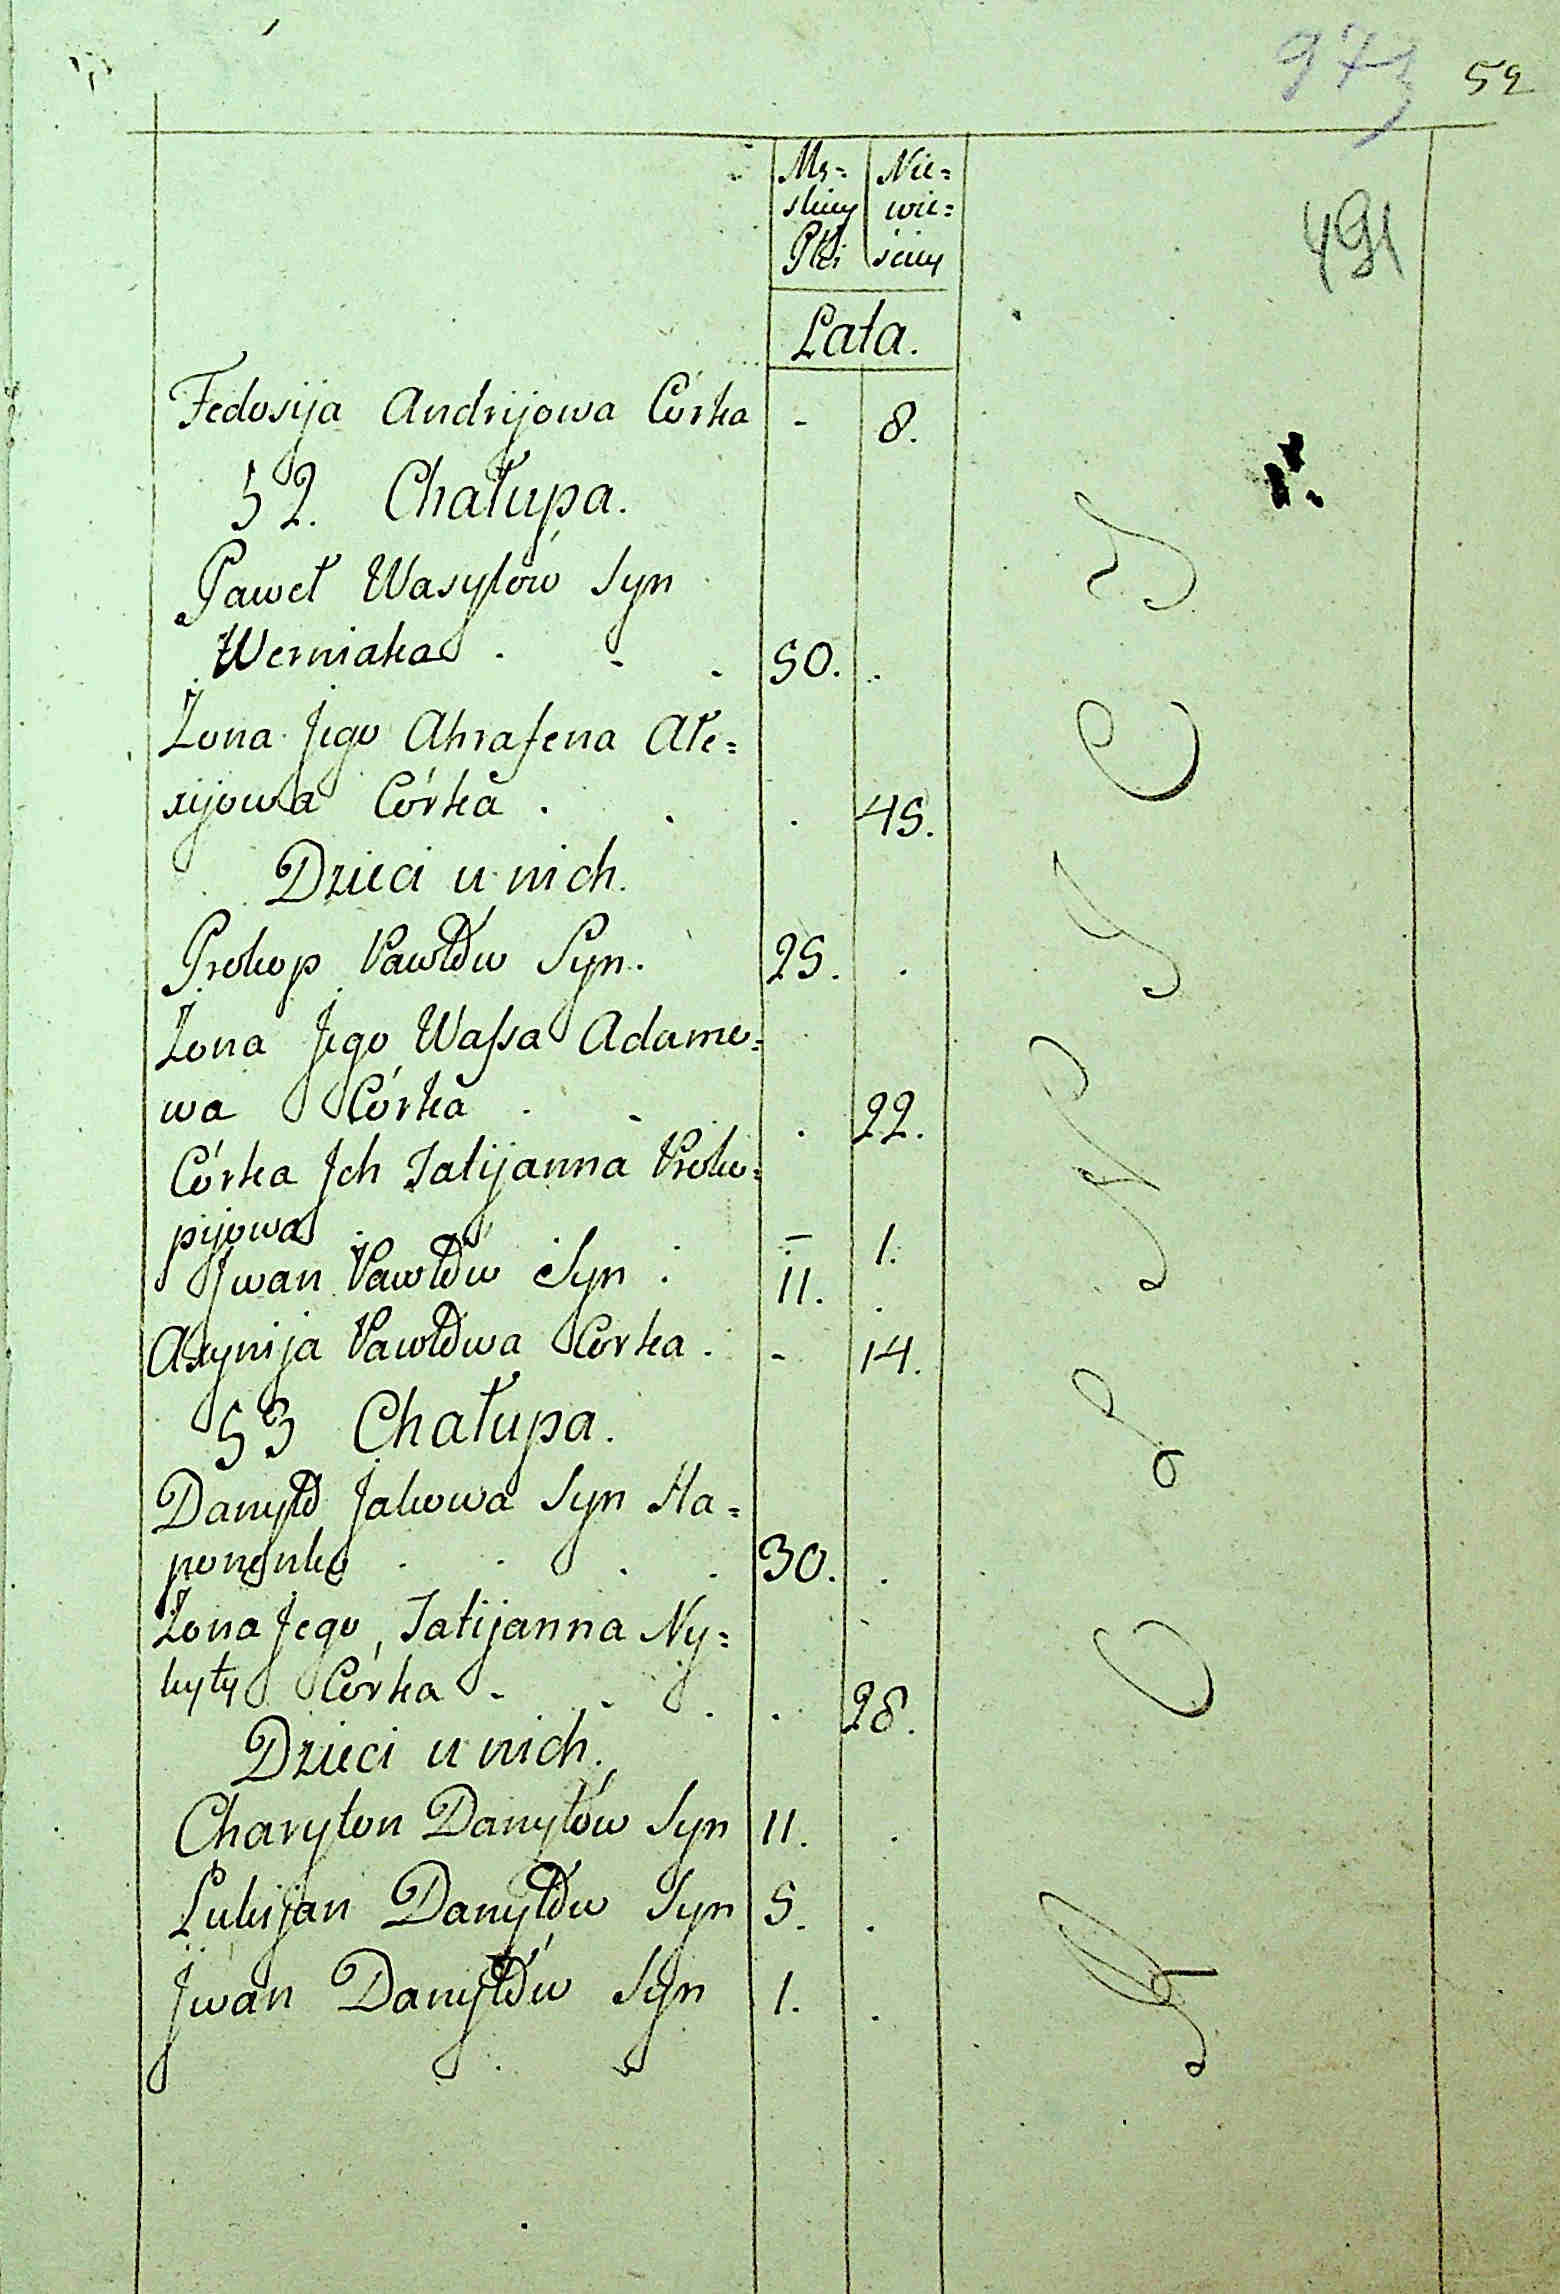 973 52
Mę= Nie=
skiey wie=
Płci ściey
491
Lata.
Fedosija Andrijowa Córka - 8.
52. Chałupa.
Paweł Wasylów Syn
Werniaka . - . 50. .
Żona Jego Ahrafena Ałe=
xijowa Córka . . . 45.
Dzieci u nich.
Prokop Pawłów Syn. 25. .
Żona Jego Wassa Adamo=
wa Córka . - . 22.
Córka Jch Tatijanna Proko=
pijowa . - 1.
Jwan Pawłów Syn . 11. .
Axynija Pawłówa Córka . - 14.
53 Chałupa.
Danyło Jakowa Syn Ha=
ponenko . . . . 30. .
Żona Jego, Tatijanna Ny=
kyty Córka - - . . 28.
Dzieci u nich.
Charyton Danyłów Syn 11. .
Lukijan Danyłów Syn 5. .
Jwan Danyłów Syn 1. .